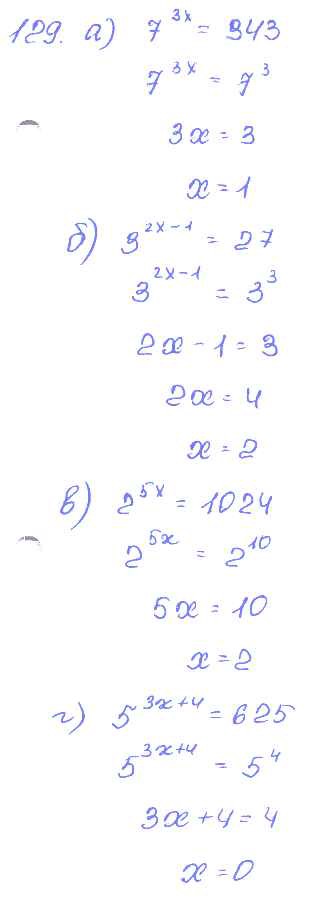 129. а) 7^{3x} = 343
7^{3x} = 7^3
3x = 3
x = 1
б) 3^{2x-1} = 27
3^{2x-1} = 3^3
2x - 1 = 3
2x = 4
x = 2
в) 2^{5x} = 1024
2^{5x} = 2^{10}
5x = 10
x = 2
г) 5^{3x+4} = 625
5^{3x+4} = 5^4
3x + 4 = 4
x = 0